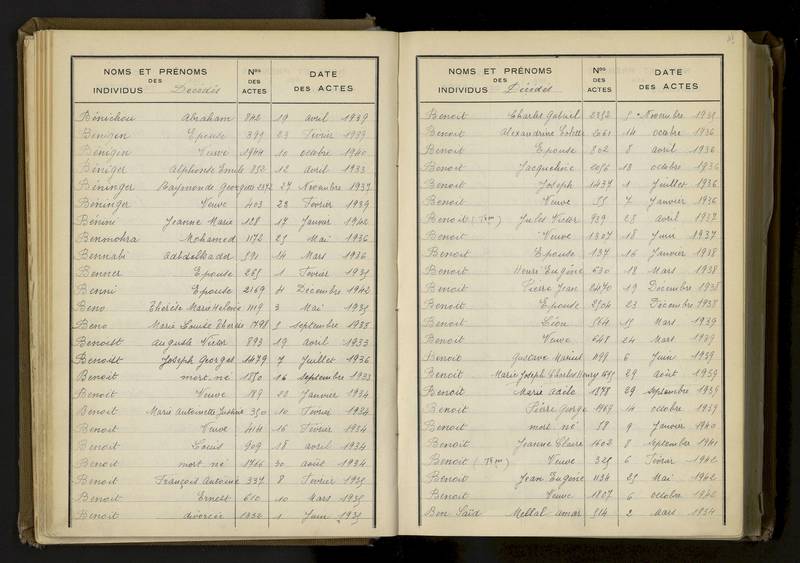 NOMS ET PRÉNOMS DES INDIVIDUS Décédés Nos DES ACTES DATE DES ACTES
Bénichou Abraham 842 19 avril 1939
Benigen Epouse 399 23 Février 1939
Bénigen Veuve 1944 10 octobre 1940
Béniger Alphonse Emile 850 12 avril 1933
Béninger Raymonde Georgette 2372 27 Novembre 1937
Béninger Veuve 403 23 Février 1939
Bénini Jeanne Marie 128 17 Janvier 1942
Benmohra Mohamed 1172 25 Mai 1936
Bennabi Abdelkader 591 14 Mars 1936
Benner Epouse 265 1 Février 1935
Benni Epouse 2169 4 Décembre 1942
Beno Thérèse Marie Hélène 1119 3 Mai 1935
Beno Marie Louise Thérèse 1798 5 septembre 1938
Benoist Auguste Victor 893 19 avril 1933
Benoist Joseph Georges 1479 7 Juillet 1936
Benoit mort né 1850 16 septembre 1933
Benoit Veuve 189 20 Janvier 1934
Benoit Marie Antoinette Justine 350 10 Février 1934
Benoit Veuve 414 16 Février 1934
Benoit Louis 909 18 avril 1934
Benoit mort né 1766 30 août 1934
Benoit François Antoine 337 8 Février 1935
Benoit Ernest 610 10 Mars 1935
Benoit divorcée 1332 1 Juin 1935
NOMS ET PRÉNOMS DES INDIVIDUS Décédés Nos DES ACTES DATE DES ACTES
Benoit Charles Gabriel 2352 5 Novembre 1935
Benoit Alexandrine 2061 14 octobre 1936
Benoit Epouse 802 8 avril 1936
Benoit Jacqueline 2056 13 octobre 1936
Benoit Joseph 1437 1 Juillet 1936
Benoit Veuve 55 7 Janvier 1936
Benoit Jules Victor 939 28 avril 1937
Benoit Veuve 1307 18 Juin 1937
Benoit Epouse 137 16 Janvier 1938
Benoit Henri Eugène 630 18 Mars 1938
Benoit Pierre Jean 2470 19 Décembre 1938
Benoit Epouse 2504 23 Décembre 1938
Benoit Léon 564 15 Mars 1939
Benoit Veuve 648 24 Mars 1939
Benoit Gustave Marius 1199 6 Juin 1939
Benoit Marie Joseph Charles Henry 1695 29 août 1939
Benoit Marie Adèle 1878 29 septembre 1939
Benoit Pierre George 1969 14 octobre 1939
Benoit mort né 58 9 Janvier 1940
Benoit Jeanne Claire 1602 8 septembre 1941
Benoit Veuve 325 6 Février 1942
Benoit Jean Eugène 1134 25 Mai 1942
Benoit Veuve 1807 6 octobre 1942
Ben Saïd Mellal Amar 514 2 Mars 1934